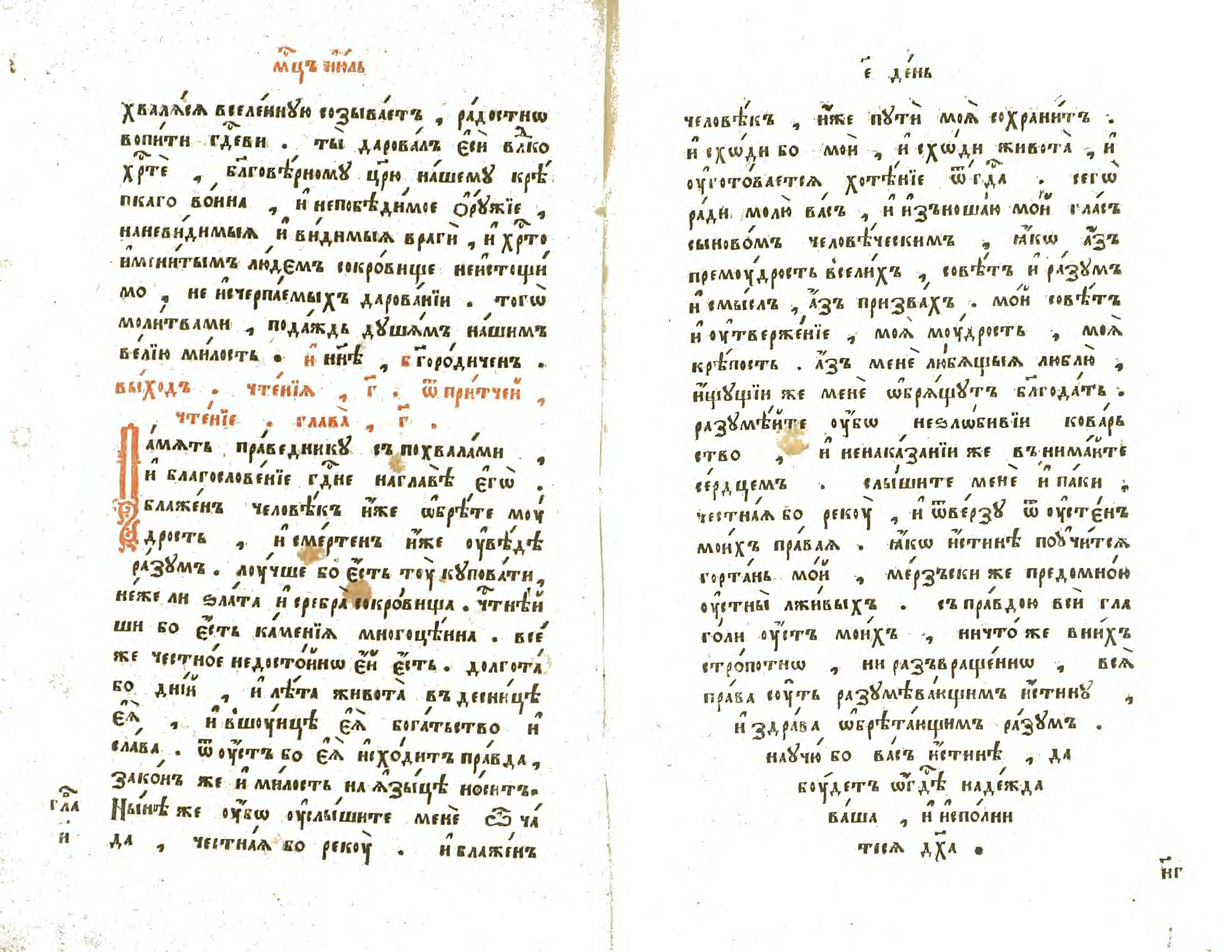 мⷭ҇цъ и҆ю́ль
хваля́сѧ вселе́ннꙋю созыва́етъ , ра́достнѡ
вопи́ти гдⷭ҇еви . ты̀ дарова́лъ є҆сѝ влⷣко
хрⷭ҇тѐ , бл҃гове́рномꙋ цр҃ю на́шемꙋ крѣ́
пкаго во́ина , и҆ непобѣди́мое ѻ҆рꙋ́жїе ,
наневи́димыѧ и҆ ви́димыѧ врагѝ , и҆ хрⷭ҇то
и҆мени́тымъ лю́демъ сокро́вище неи́стощи
мо , не и҆счерпа́емыхъ дарова́нїи . тогѡ̀
моли́твами , пода́ждь дꙋша́мъ на́шимъ
ве́лїю ми́лость . и҆ нн҃ѣ , бг҃оро́диченъ .
вы́ходъ . чте́нїѧ , г҃ . ѿ при́тчей ,
чте́нїе . глава̀ , г҃ .
Па́мѧть пра́ведникꙋ съ похвала́ми ,
и҆ благослове́нїе гдⷭ҇не наглавѣ̀ є҆гѡ̀ .
блаже́нъ человѣ́къ и҆́же ѡ҆брѣ́те моу́
дрость , и҆ сме́ртенъ и҆́же оу҆вѣ́дѣ
ра́зꙋмъ . лоу́чше бо є҆́сть тоу̀ кꙋпова́ти ,
не́же ли ѕла́та и҆ сребра̀ сокро́вища . чтⷭ҇нѣ́й
ши бо є҆́сть ка́менїѧ многоцѣ́нна . все́
же честно́е недосто́йнѡ є҆́й є҆́сть . долгота̀
бо дні́й , и҆ лѣ́та живота̀ въ десни́цѣ
є҆ѧ̀ , и҆ вшоу́ицѣ є҆ѧ̀ бога́тьство и҆
сла́ва . ѿ оу҆́стъ бо є҆ѧ̀ и҆схо́дитъ пра́вда ,
зако́нъ же и҆ ми́лость на ѧ҆зы́цѣ но́ситъ .
гла Ны́нѣ же оу҆́бѡ оу҆слы́шите менѐ ѽ ча́
и҃ да , че́стнаѧ бо рекоу̀ . и҆ блаже́нъ
є҃ де́нь
человѣ́къ , и҆́же пꙋтѝ моѧ̀ сохрани́тъ .
и҆ схѡ́ди бо моѝ , и҆ схѡ́ди живота̀ , и҆
оу҆гото́ваетсѧ хотѣ́нїе ѿ гдⷭ҇а . сегѡ̀
ра́ди молю̀ ва́съ , и҆ и҆зъноша́ю мо́й гла́съ
сыново́мъ человѣ́ческимъ , ꙗ҆́кѡ а҆́зъ
премоу́дрость вселѝхъ , совѣ́тъ и҆ ра́зꙋмъ
и҆ смы́слъ , а҆́зъ призва́хъ . мо́й совѣ́тъ
и҆ оу҆твержéнїе , моѧ̀ моу́дрость , моѧ̀
крѣ́пость . а҆́зъ менѐ лю́бѧщыѧ люблю̀ ,
и҆́щꙋщїи же менѐ ѡ҆брѧ́щꙋтъ бл҃года́ть .
разꙋмѣ́йте оу҆́бѡ неѕло́бивїи кова́рь
ство , и҆ ненаказа́нїи же въ нима́йте
се́рдцемъ . слы́шите менѐ и҆ па́ки ,
че́стнаѧ бо рекоу̀ , и҆ ѿве́рзꙋ ѿ оу҆сте́нъ
мои́хъ пра́ваѧ . ꙗ҆́кѡ и҆́стинѣ поꙋчи́тсѧ
горта́нь мо́й , ме́рзъски же предомно́ю
оу҆стны̀ лжи́выхъ . съ пра́вдою всѝ гла
го́ли оу҆́стъ мои́хъ , ничто́ же вни́хъ
стро́потнѡ , ни разъвраще́ннѡ , всѧ̀
пра́ва соу́ть разꙋмѣва́ющимъ и҆́стинꙋ ,
и҆ здра́ва ѡ҆брѣта́ющимъ ра́зꙋмъ .
наꙋчю́ бо ва́съ и҆́стинѣ , да
боу́детъ ѡ҆ гдⷭ҇ѣ наде́жда
ва́ша , и҆ и҆спо́лни
тесѧ дх҃а .
н҃г